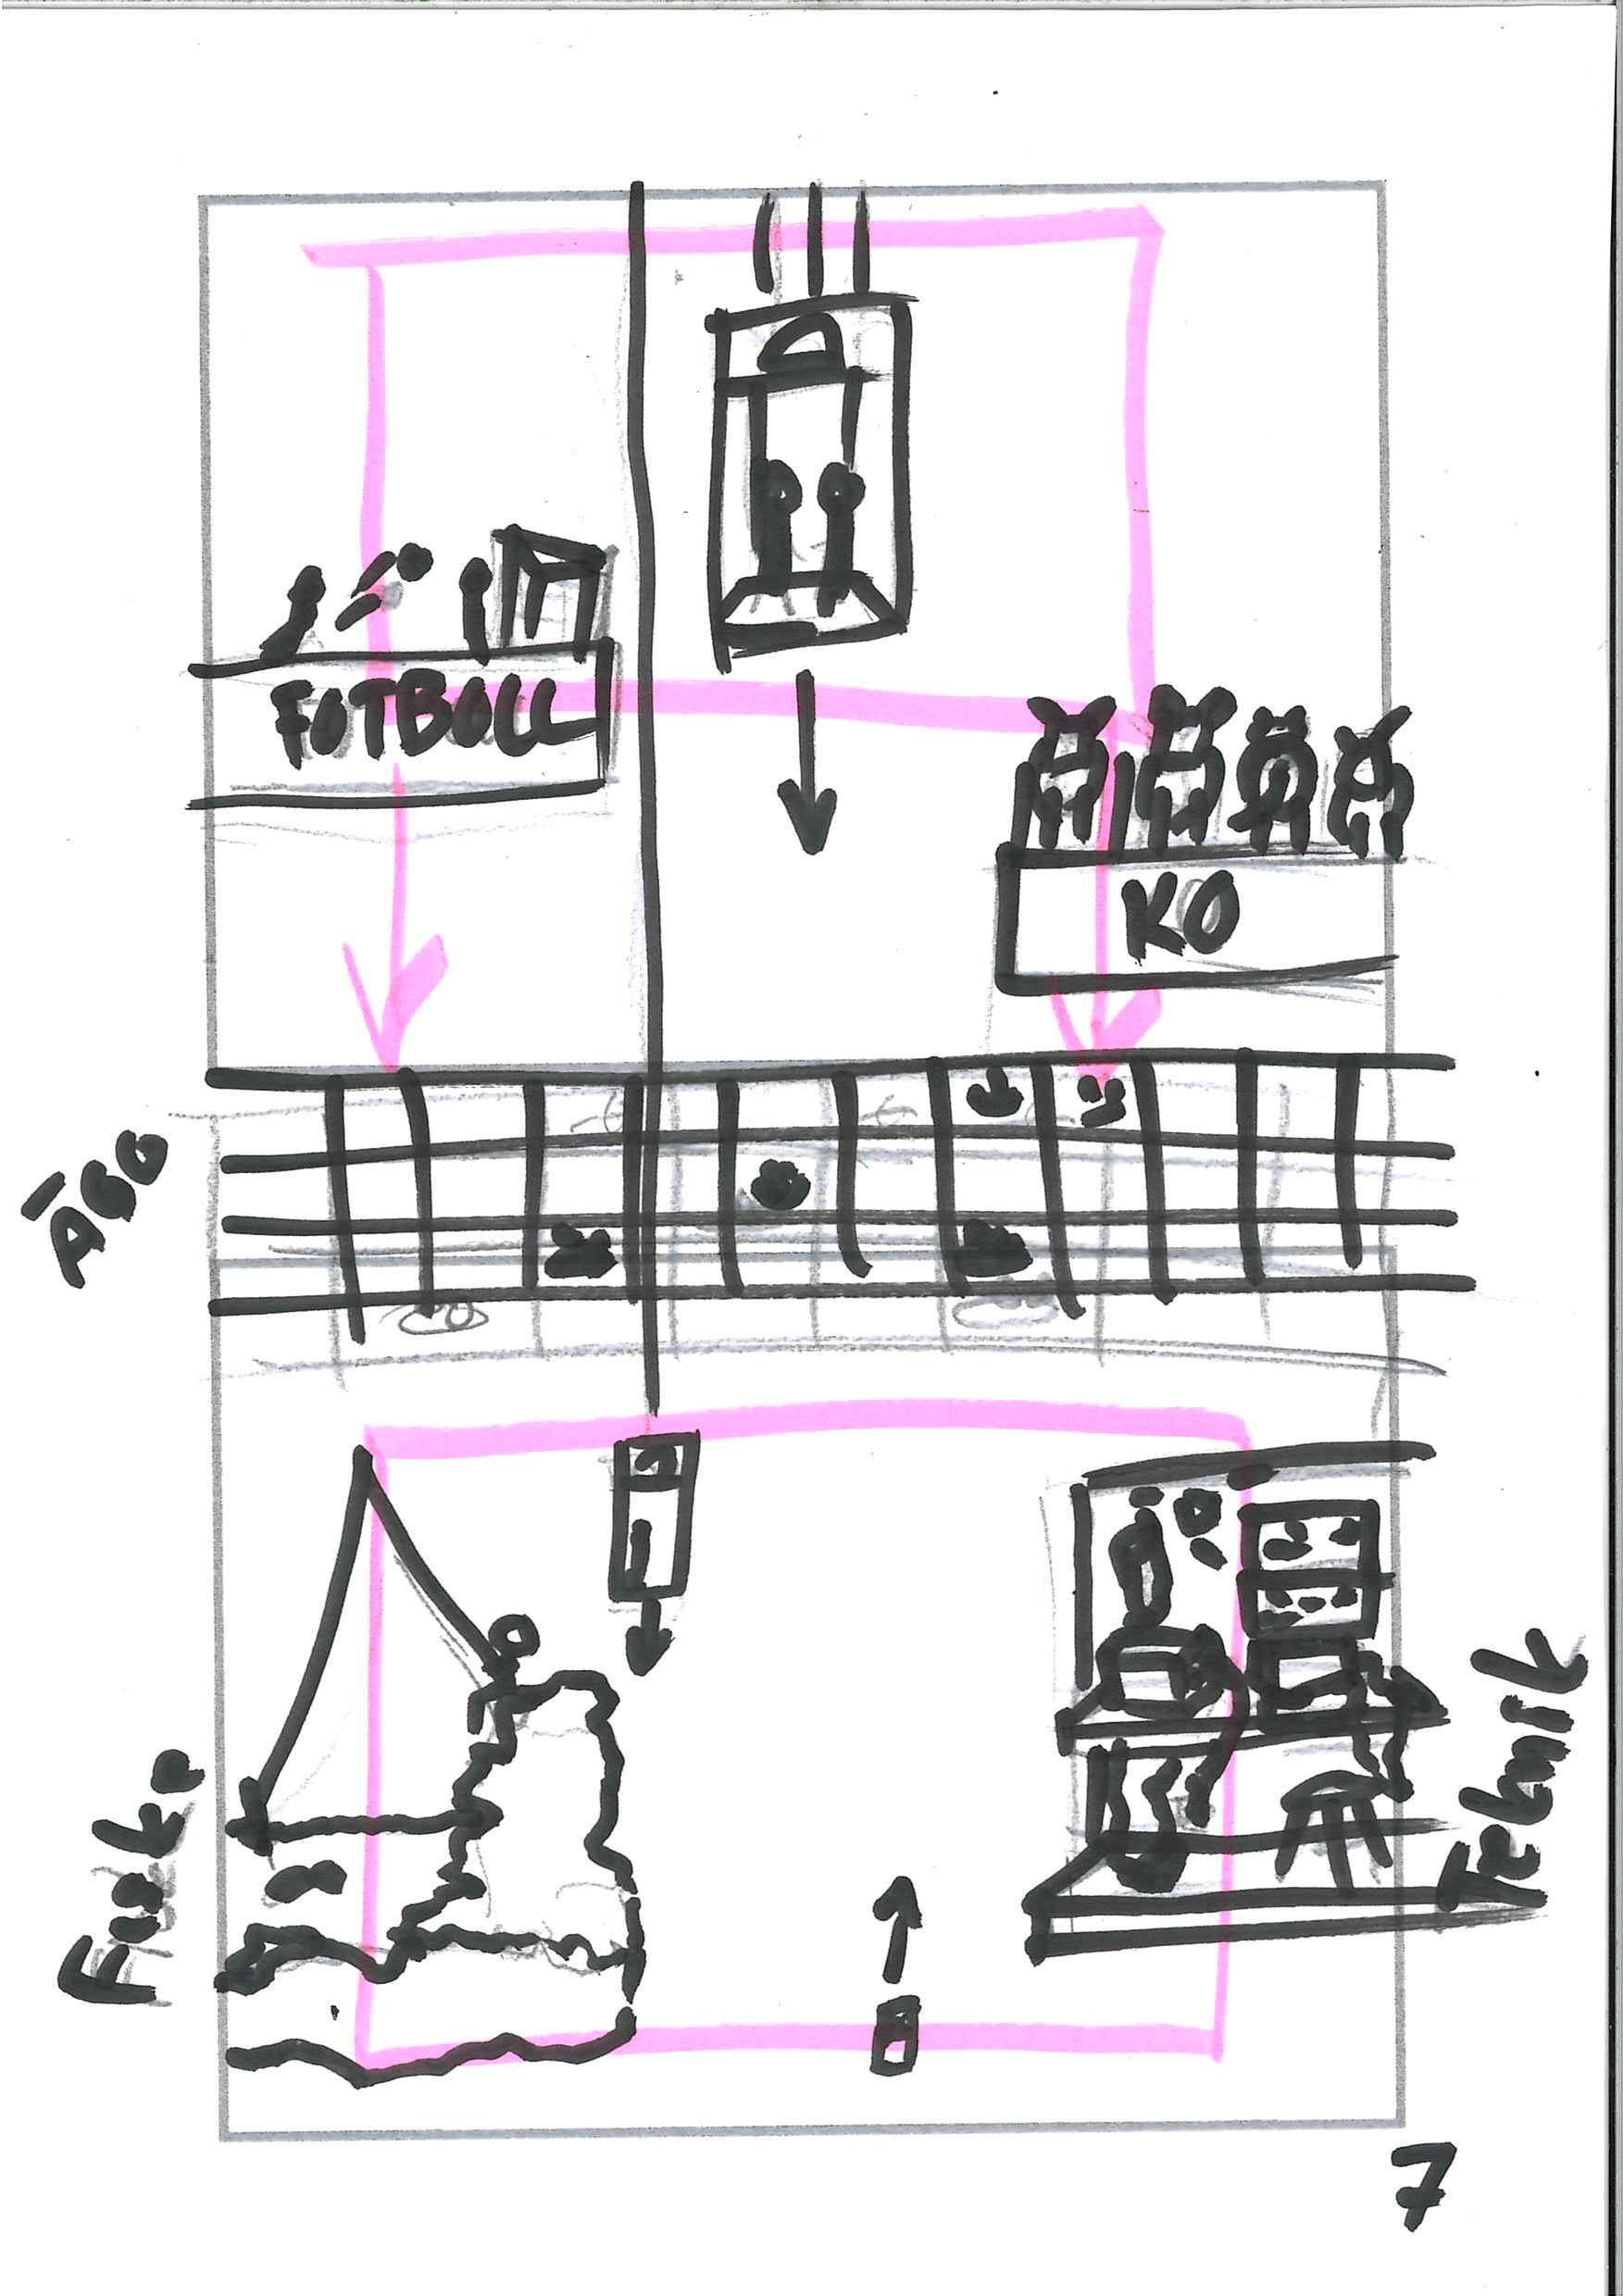 FOTBOLL
KO
ÄGG
Fiske
Teknik
7